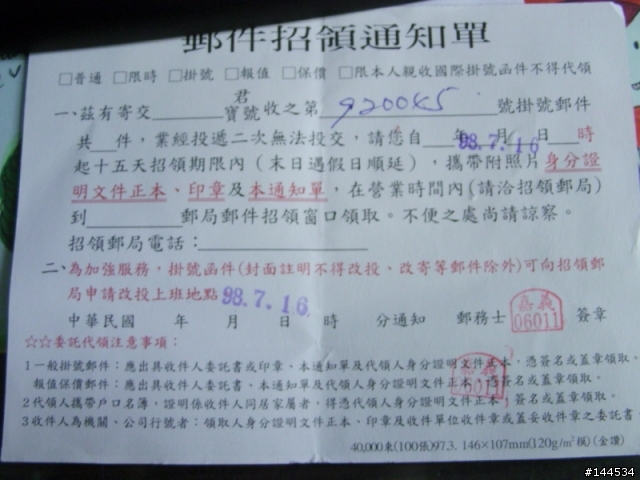 郵件招領通知單
□普通 □限時 □掛號 □報值 □保價 □限本人親收國際掛號函件不得代領
一、茲有寄交________君寶號收之第 920045 號掛號郵件
共__件，業經投遞二次無法投交，請您自__年98.7.16月__日__時
起十五天招領期限內(末日遇假日順延)，攜帶附照片身分證
明文件正本、印章及本通知單，在營業時間內(請洽招領郵局)
到________郵局郵件招領窗口領取。不便之處尚請諒察。
招領郵局電話：____________
二、為加強服務，掛號函件(封面註明不得改投、改寄等郵件除外)可向招領郵
局申請改投上班地點 98.7.16
中華民國 年 月 日 時 分通知 郵務士 嘉義 06011 簽章
☆☆委託代領注意事項：
1一般掛號郵件：應出具收件人委託書或印章、本通知單及代領人身分證明文件正本，憑簽名或蓋章領取。
報值保價郵件：應出具收件人委託書、本通知單及代領人身分證明文件正本，憑簽名或蓋章領取。
2代領人攜帶戶口名簿，證明係收件人同居家屬者，得憑代領人身分證明文件正本，簽名或蓋章領取。
3收件人為機關、公司行號者：領取人身分證明文件正本、印章及收件單位收件章或蓋妥收件章之委託書
嘉義
40,000束(100張)97.3. 146×107mm(120g/m²模)(金讚)
#144534